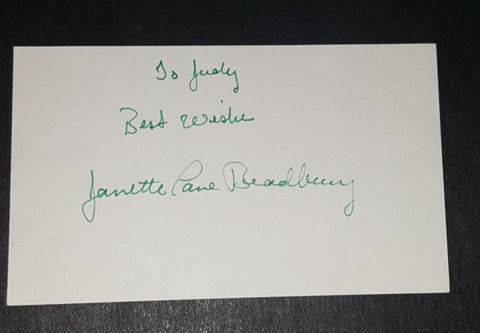 To Judy
Best Wishes
Janette Lane Bradbury